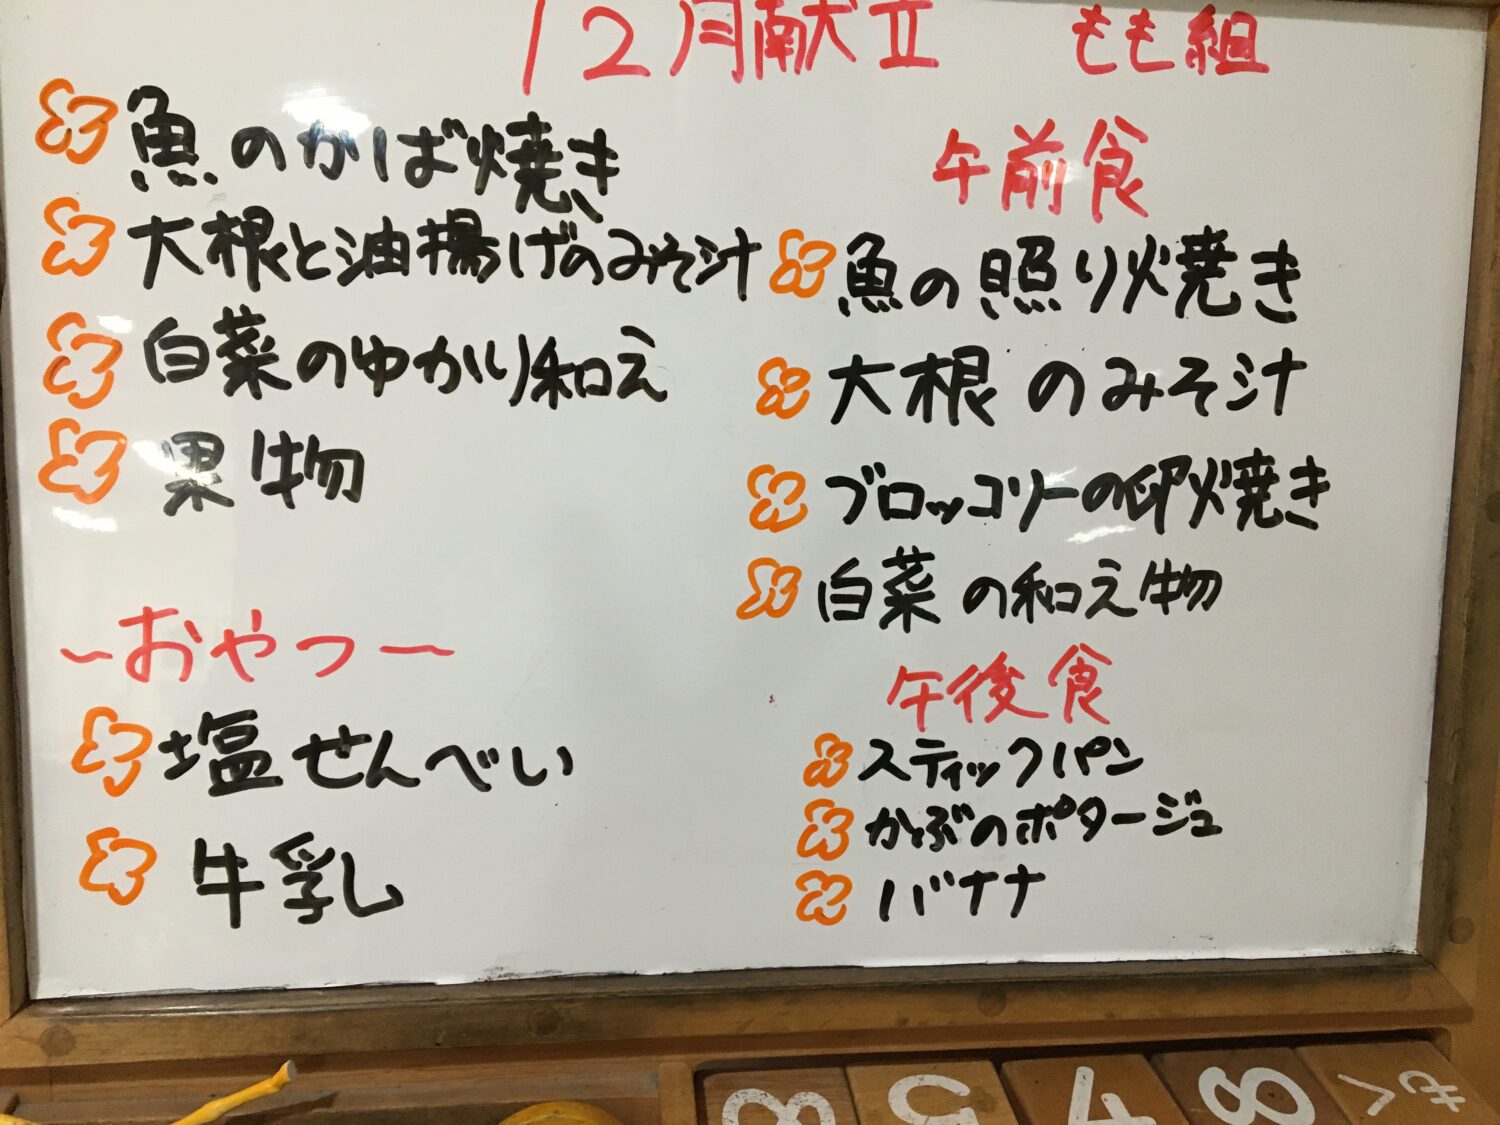 12月献立 もも組
魚のかば焼き
大根と油揚げのみそ汁
白菜のゆかり和え
果物
~おやつ~
塩せんべい
牛乳
午前食
魚の照り焼き
大根のみそ汁
ブロッコリーの卵焼き
白菜の和え物
午後食
スティックパン
かぶのポタージュ
バナナ
8
5
4
8
もく